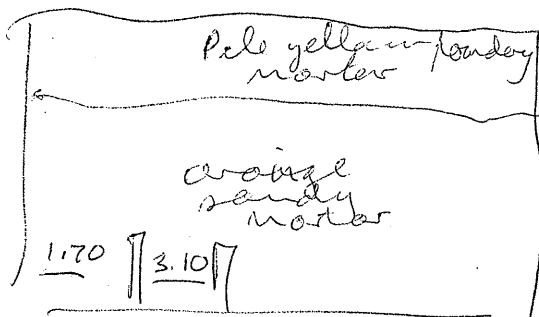 Pale yellow powdery
mortar
orange
sandy
mortar
1.70 3.10